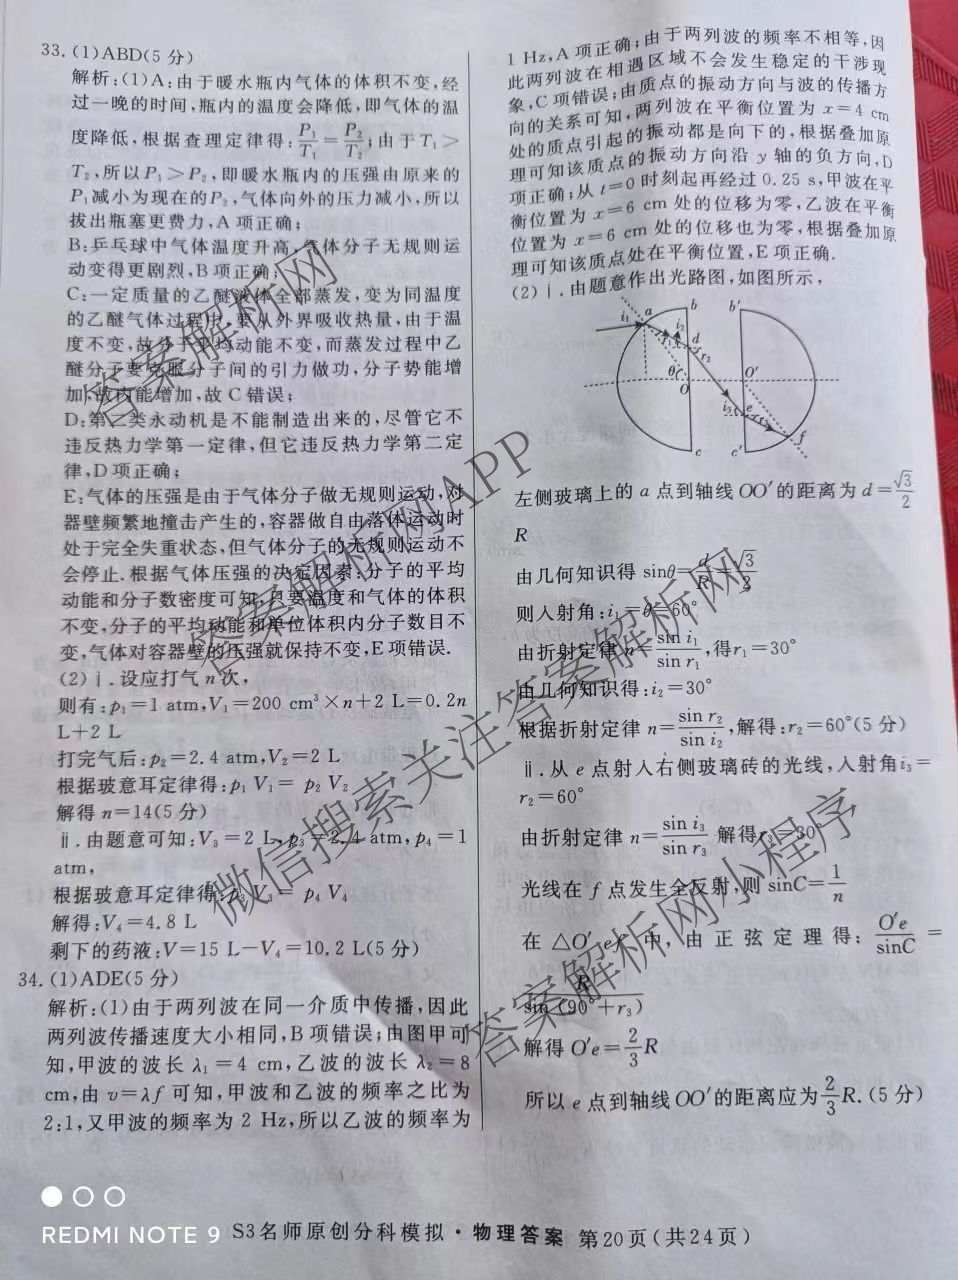 33. (1)ABD(5 分)
解析:(1)A:由于暖水瓶内气体的体积不变,经
过一晚的时间,瓶内的温度会降低,即气体的温
度降低,根据查理定律得:P₁/T₁=P₂/T₂;由于T₁>
T₂,所以P₁>P₂,即暖水瓶内的压强由原来的
P₁减小为现在的P₂,气体向外的压力减小,所以
拔出瓶塞更费力,A 项正确;
B:乒乓球中气体温度升高,气体分子无规则运
动变得更剧烈,B项正确;
C:一定质量的乙醚液体全部蒸发,变为同温度
的乙醚气体过程中,要从外界吸收热量,由于温
度不变,故分子平均动能不变,而蒸发过程中乙
醚分子要克服分子间的引力做功,分子势能增
加,故内能增加,故C错误;
D:第二类永动机是不能制造出来的,尽管它不
违反热力学第一定律,但它违反热力学第二定
律,D项正确;
E:气体的压强是由于气体分子做无规则运动,对
器壁频繁地撞击产生的,容器做自由落体运动时
处于完全失重状态,但气体分子的无规则运动不
会停止.根据气体压强的决定因素:分子的平均
动能和分子数密度可知,只要温度和气体的体积
不变,分子的平均动能和单位体积内分子数目不
变,气体对容器壁的压强就保持不变,E项错误.
(2)ⅰ.设应打气 n 次,
则有:p₁=1 atm,V₁=200 cm³×n+2 L=0.2n
L+2 L
打完气后:p₂=2.4 atm,V₂=2 L
根据玻意耳定律得:p₁ V₁= p₂ V₂
解得 n=14(5分)
ⅱ.由题意可知:V₃=2 L,p₃=2.4 atm,p₄=1
atm,
根据玻意耳定律得:p₃ V₃= p₄ V₄
解得:V₄=4.8 L
剩下的药液:V=15 L-V₄=10.2 L(5分)
34. (1)ADE(5分)
解析:(1)由于两列波在同一介质中传播,因此
两列波传播速度大小相同,B项错误;由图甲可
知,甲波的波长 λ₁=4 cm,乙波的波长 λ₂=8
cm,由 v=λf 可知,甲波和乙波的频率之比为
2:1,又甲波的频率为 2 Hz,所以乙波的频率为
1 Hz,A项正确;由于两列波的频率不相等,因
此两列波在相遇区域不会发生稳定的干涉现
象,C项错误;由质点的振动方向与波的传播方
向的关系可知,两列波在平衡位置为 x=4 cm
处的质点引起的振动都是向下的,根据叠加原
理可知该质点的振动方向沿 y 轴的负方向,D
项正确;从 t=0 时刻起再经过 0.25 s,甲波在平
衡位置为 x=6 cm 处的位移为零,乙波在平衡
位置为 x=6 cm 处的位移也为零,根据叠加原
理可知该质点处在平衡位置,E项正确.
(2)ⅰ.由题意作出光路图,如图所示,
i₁ a b b′
i₂ d r₂
θ C O O′
i₃ e r₃ f
c c′
左侧玻璃上的 a 点到轴线 OO′的距离为 d=√3/2
R
由几何知识得 sinθ=d/R=√3/2
则入射角:i₁=θ=60°
由折射定律 n=sin i₁/sin r₁,得r₁=30°
由几何知识得:i₂=30°
根据折射定律 n=sin r₂/sin i₂,解得:r₂=60°(5分)
ⅱ.从 e 点射入右侧玻璃砖的光线,入射角i₃=
r₂=60°
由折射定律 n=sin i₃/sin r₃ 解得r₃=30°
光线在 f 点发生全反射,则 sinC=1/n
在 △O′ef 中,由正弦定理得:O′e/sinC=
R/sin(90°+r₃)
解得 O′e=2/3R
所以 e 点到轴线OO′的距离应为2/3R.(5分)
答案解析网
答案解析网APP
微信搜索关注答案解析网
答案解析网小程序
REDMI NOTE 9
S3名师原创分科模拟·物理答案 第20页(共24页)